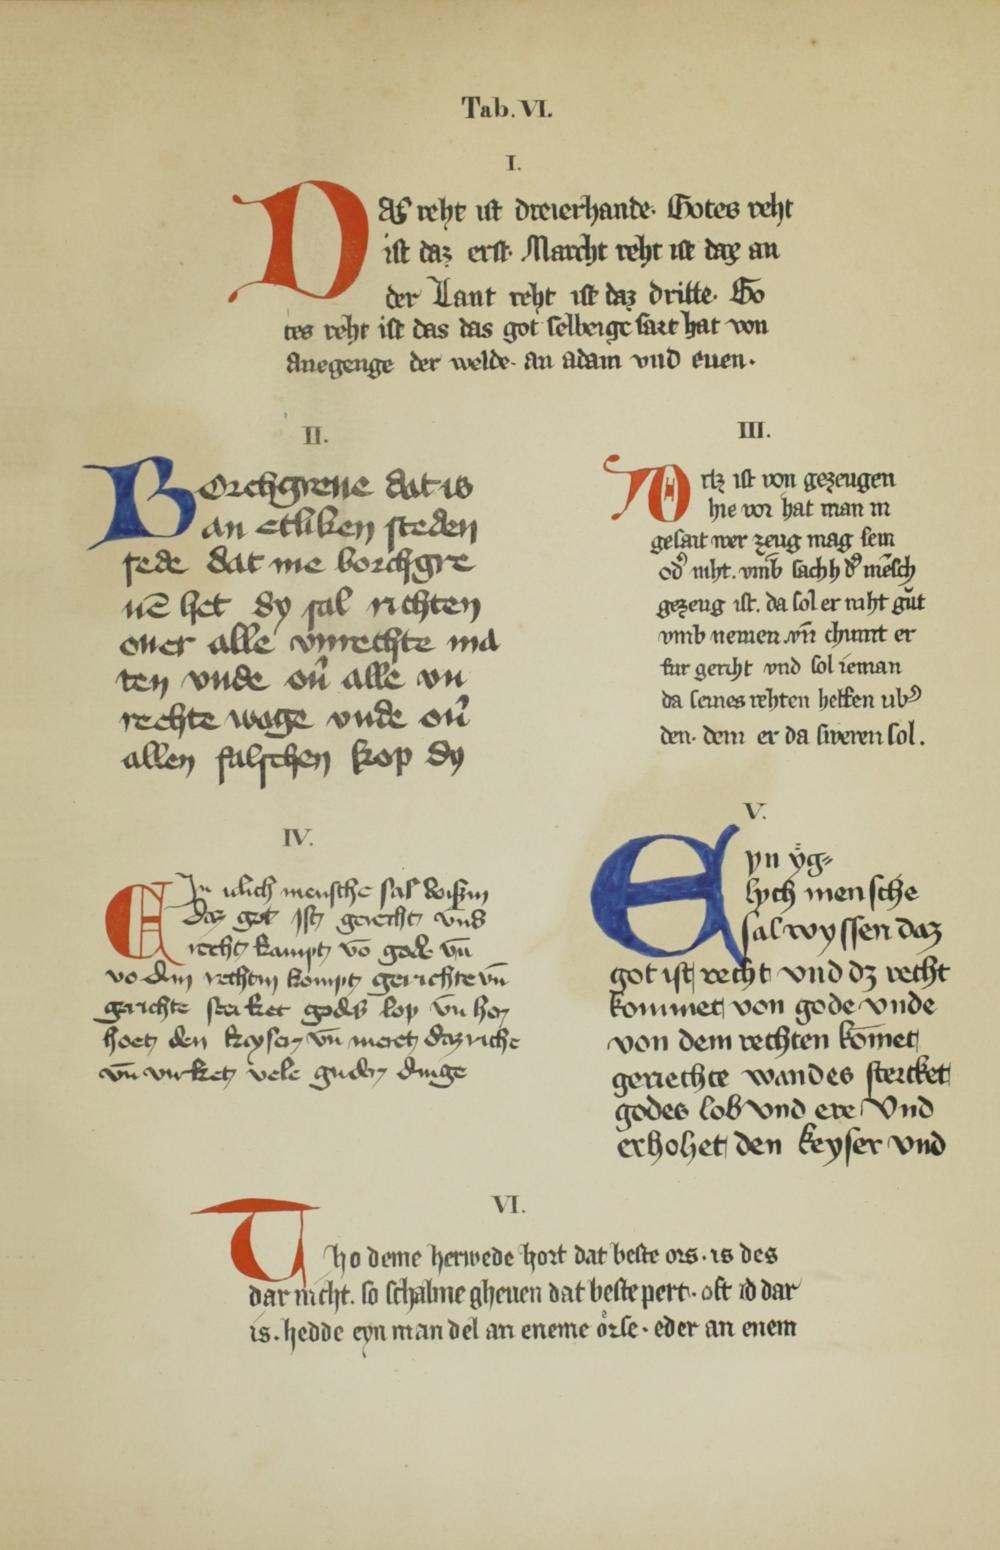 Tab. VI.
I.
DAſ reht iſt dreierhande. Gotes reht
iſt daz erſt. Marcht reht iſt daz an
der Lant reht iſt daz dritte. Go
tes reht iſt das das got ſelberge ſazt hat von
Anegenge der welde. an adam vnd euen.
II.
BOrchgreue dat is
an etliken ſteden
ſede dat me borchgre
uē het dy ſal richten
ouer alle vnrechte ma
ten vnde oū alle vn
rechte wage vnde oū
allen falſchen kop dy
III.
Ortz iſt von gezeugen
hie vor hat man in
geſait wer zeug mag ſein
od' niht. vmb ſachh d' mēſch
gezeug iſt. da ſol er niht gůt
vmb nemen. vn̄ chumt er
fur gericht vnd ſol ieman
da ſeines rehten helfen ub'
den. dem er da ſweren ſol.
IV.
EIn iclich menſche ſal wiſzin
daz got iſt gerecht vnd
recht kampt vō gode vn̄
vo dem rechtin kompt gerichte vn̄
gerichte ſterket godis lop vn̄ hor
hoet den keyſer vn̄ meret daz riche
vn̄ virket vele guder dinge
V.
Eyn yg⸗
lych menſche
ſal wyſſen daz
got iſt recht vnd dz recht
kommet von gode vnde
von dem rechten kōmet
geriechte wandes ſtercket
godes lob vnd ere Vnd
erhohet den keyſer vnd
VI.
Tho deme herwede hort dat beſte ors. is des
dar nicht. ſo ſchalme gheuen dat beſte pert. oft id dar
is. hedde eyn man del an eneme orſe. eder an enem